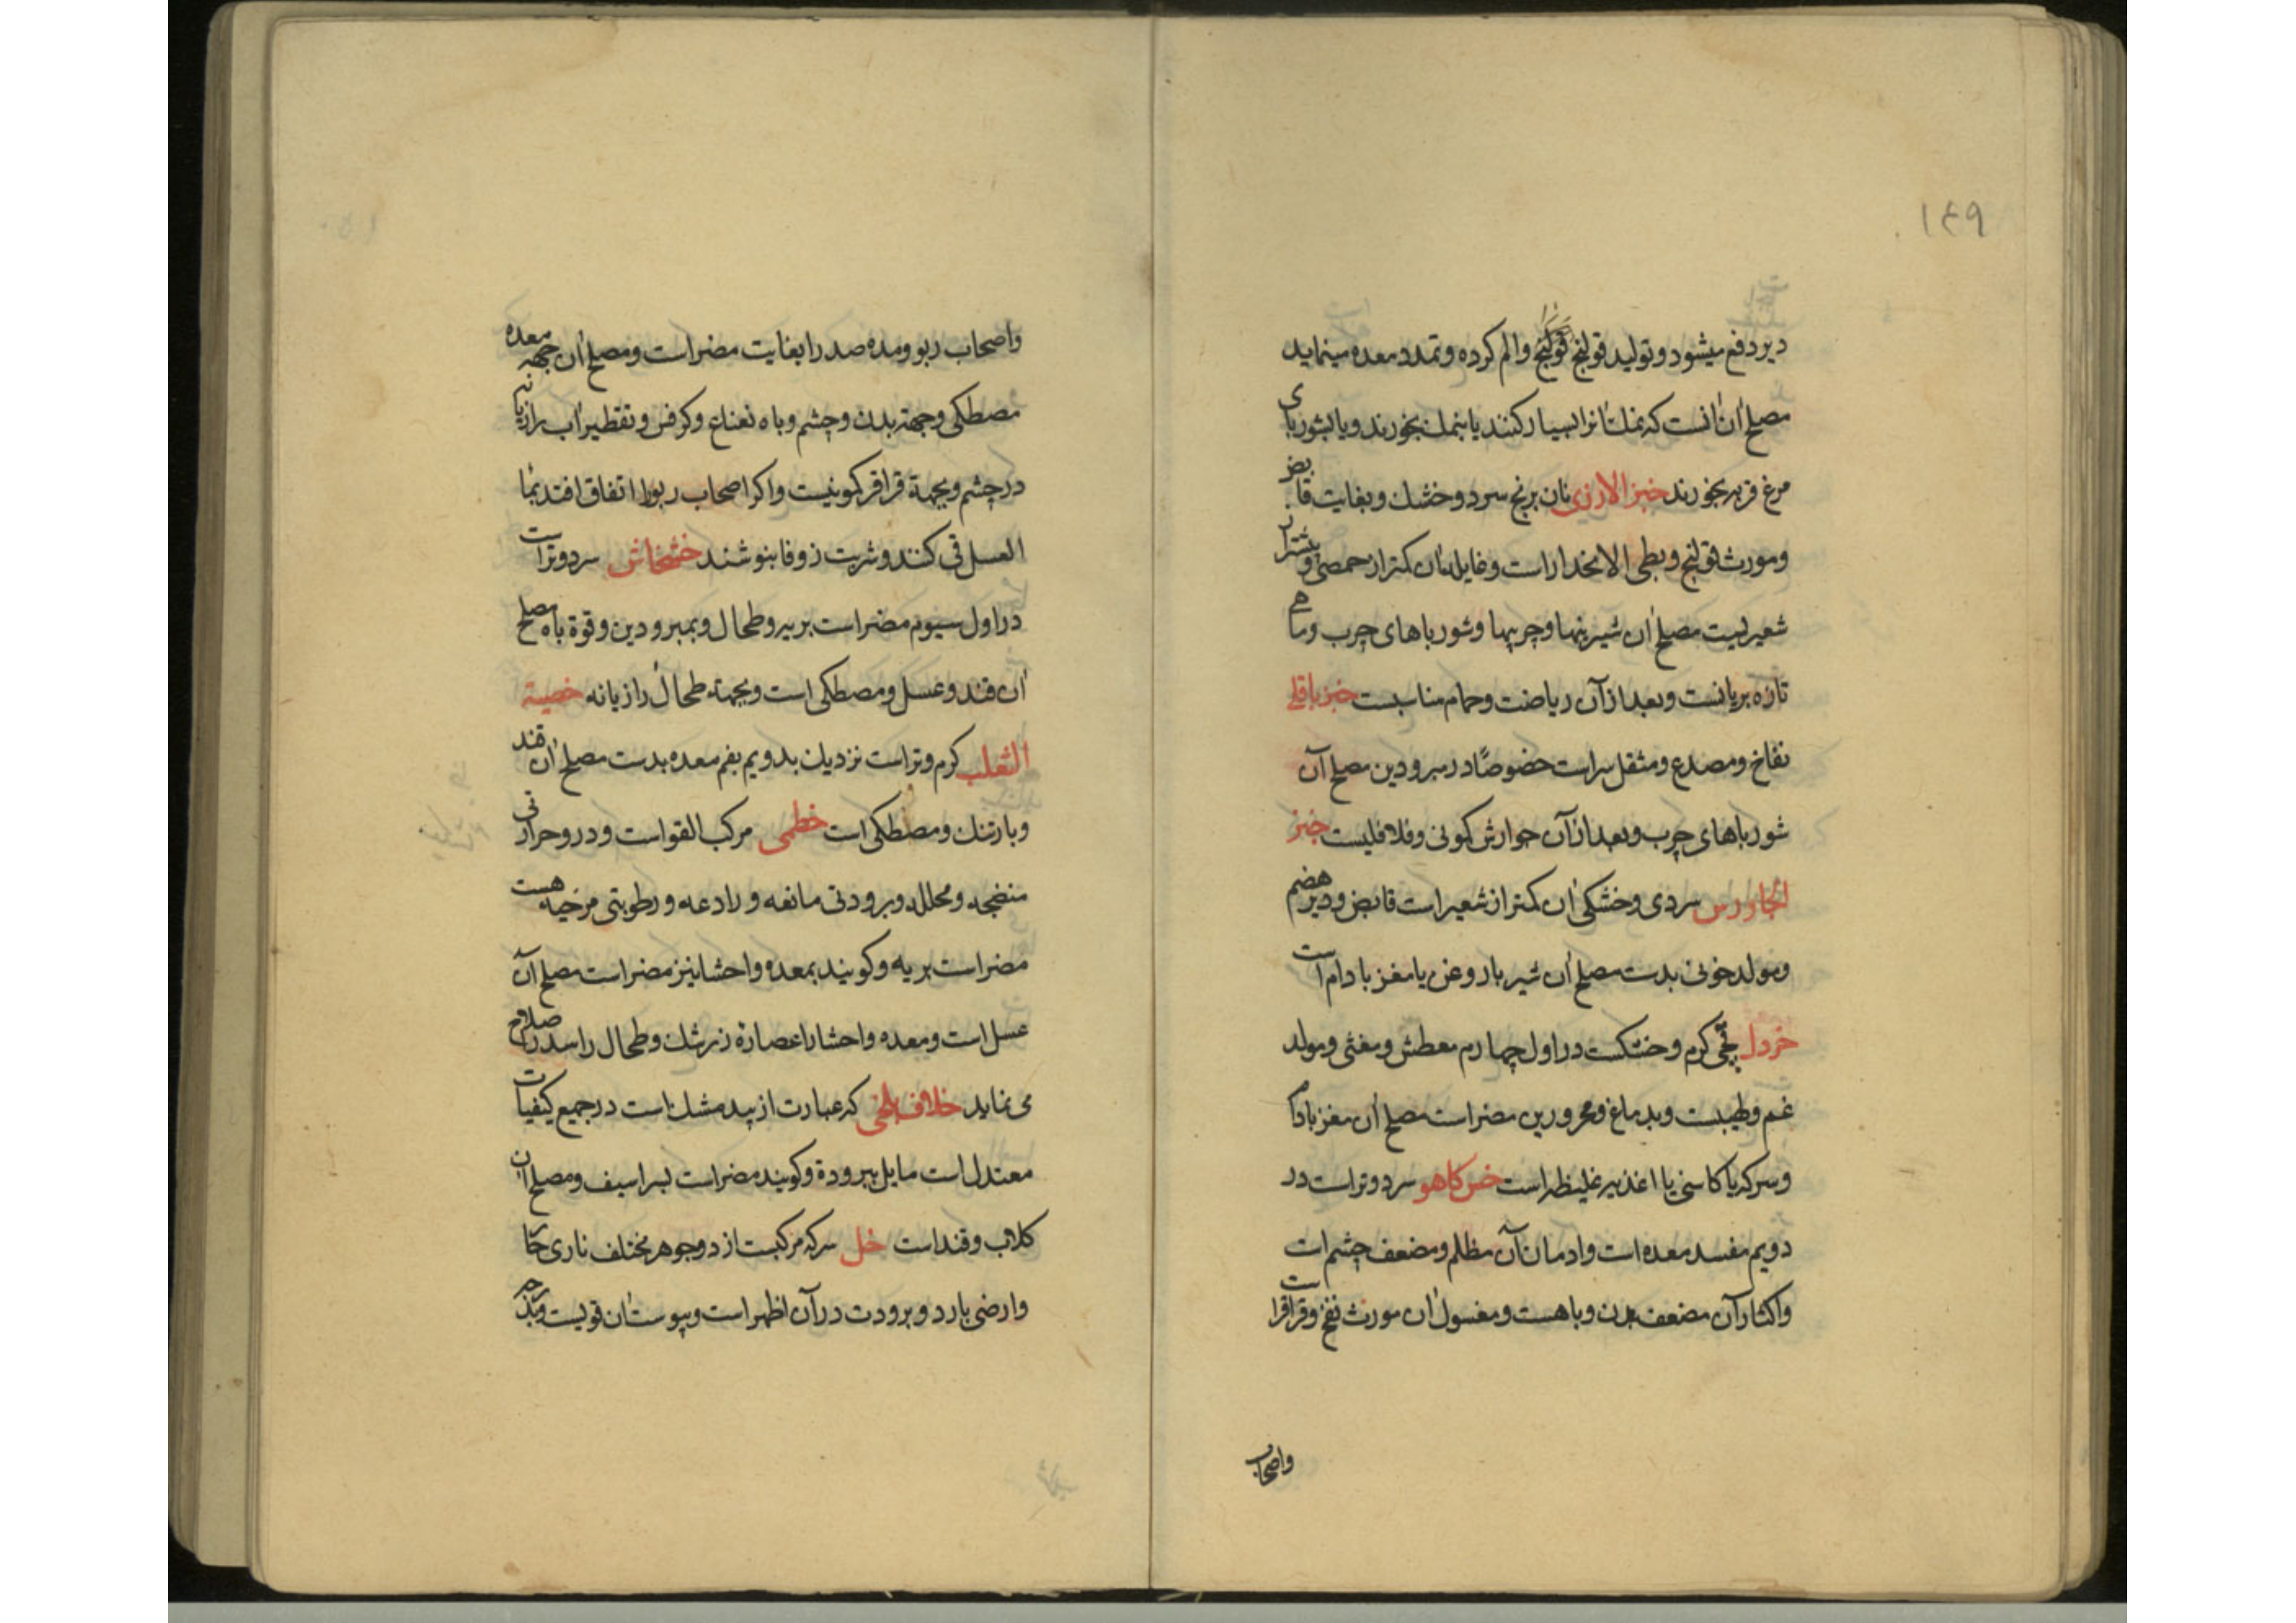 ۱۴۹
دیر دفع میشود و تولید قولنج قولنج والم کرده و تمدد معده مینماید
مصلح آن آنست که نمک آنرا بسیار کنند یا بنمک بخورند و یا بشوربای
مرغ فربه بخورند خبز الارزی نان برنج سرد و خشك و بغایت قابض
ومورث قولنج و بطی الانحدار است وغایله آن کمتر از حمصی و بیشتر از
شعیریست مصلح آن شیرینها وچربیها و شورباهای چرب و ماهی
تازه بریانست و بعد از آن ریاضت وحمام مناسبست خبز باقلی
نفاخ ومصدع ومثقل سر است خصوصًا در مبرودین مصلح آن
شورباهای چرب وبعد از آن جوارش کمونی وفلافلیست خبز
الجاورس سردی وخشکی آن کمتر از شعیر است قابض ودیر هضم
ومولد خونی بدست مصلح آن شیر با روغن یا مغز بادام است
خردل گرم وخشکست در اول چهارم معطش ومغثی ومولد
غم وطیبت وبدماغ ومحرورین مضر است مصلح آن مغز بادام
وسرکه یا کاسنی یا اغذیه غلیظه است خس کاهو سرد وتر است در
دویم مفسد معده است وادمان آن مظلم ومضعف چشم است
واکثار آن مضعف بدن وباهست ومغسول آن مورث نفخ وقراقر است
واصحاب
واصحاب ربو ومده صدر را بغایت مضر است ومصلح آن جهة معده
مصطکی وجهة بدن وچشم وباه نعناع وکرفس وتقطیر آب رازیانه
در چشم وبجهة قراقر کمونیست واکر اصحاب ربو را اتفاق افتد بما
العسل قی کنند وشربت زوفا بنوشند خشخاش سرد وتر است
در اول سیوم مضر است بریه وطحال وبمبرودین وقوة باه مصلح
آن قند وعسل ومصطکی است وبجهة طحال رازیانه خصیة
الثعلب کرم وتر است نزدیك بدویم بفم معده بدست مصلح آن قند
وبارتنك ومصطکی است خطمی مرکب القواست ودر و حرارتی
منضجه ومحلله وبرودتی مانعه ورادعه ورطوبتی مرخیه هست
مضر است بریه وکویند بمعده واحشا نیز مضر است مصلح آن
عسل است ومعده واحشا را عصارة زرشك وطحال را سدر اصلاح
می نماید خلاف بلخی که عبارت از بیدمشك است در جمیع کیفیات
معتدل است مایل ببرودة وکویند مضر است لسراسیف ومصلح آن
کلاب وقند است خل سرکه مرکبست از دو جوهر مختلف ناری حار
وارضی بارد وبرودت در آن اظهر است و بیوست آن قویست